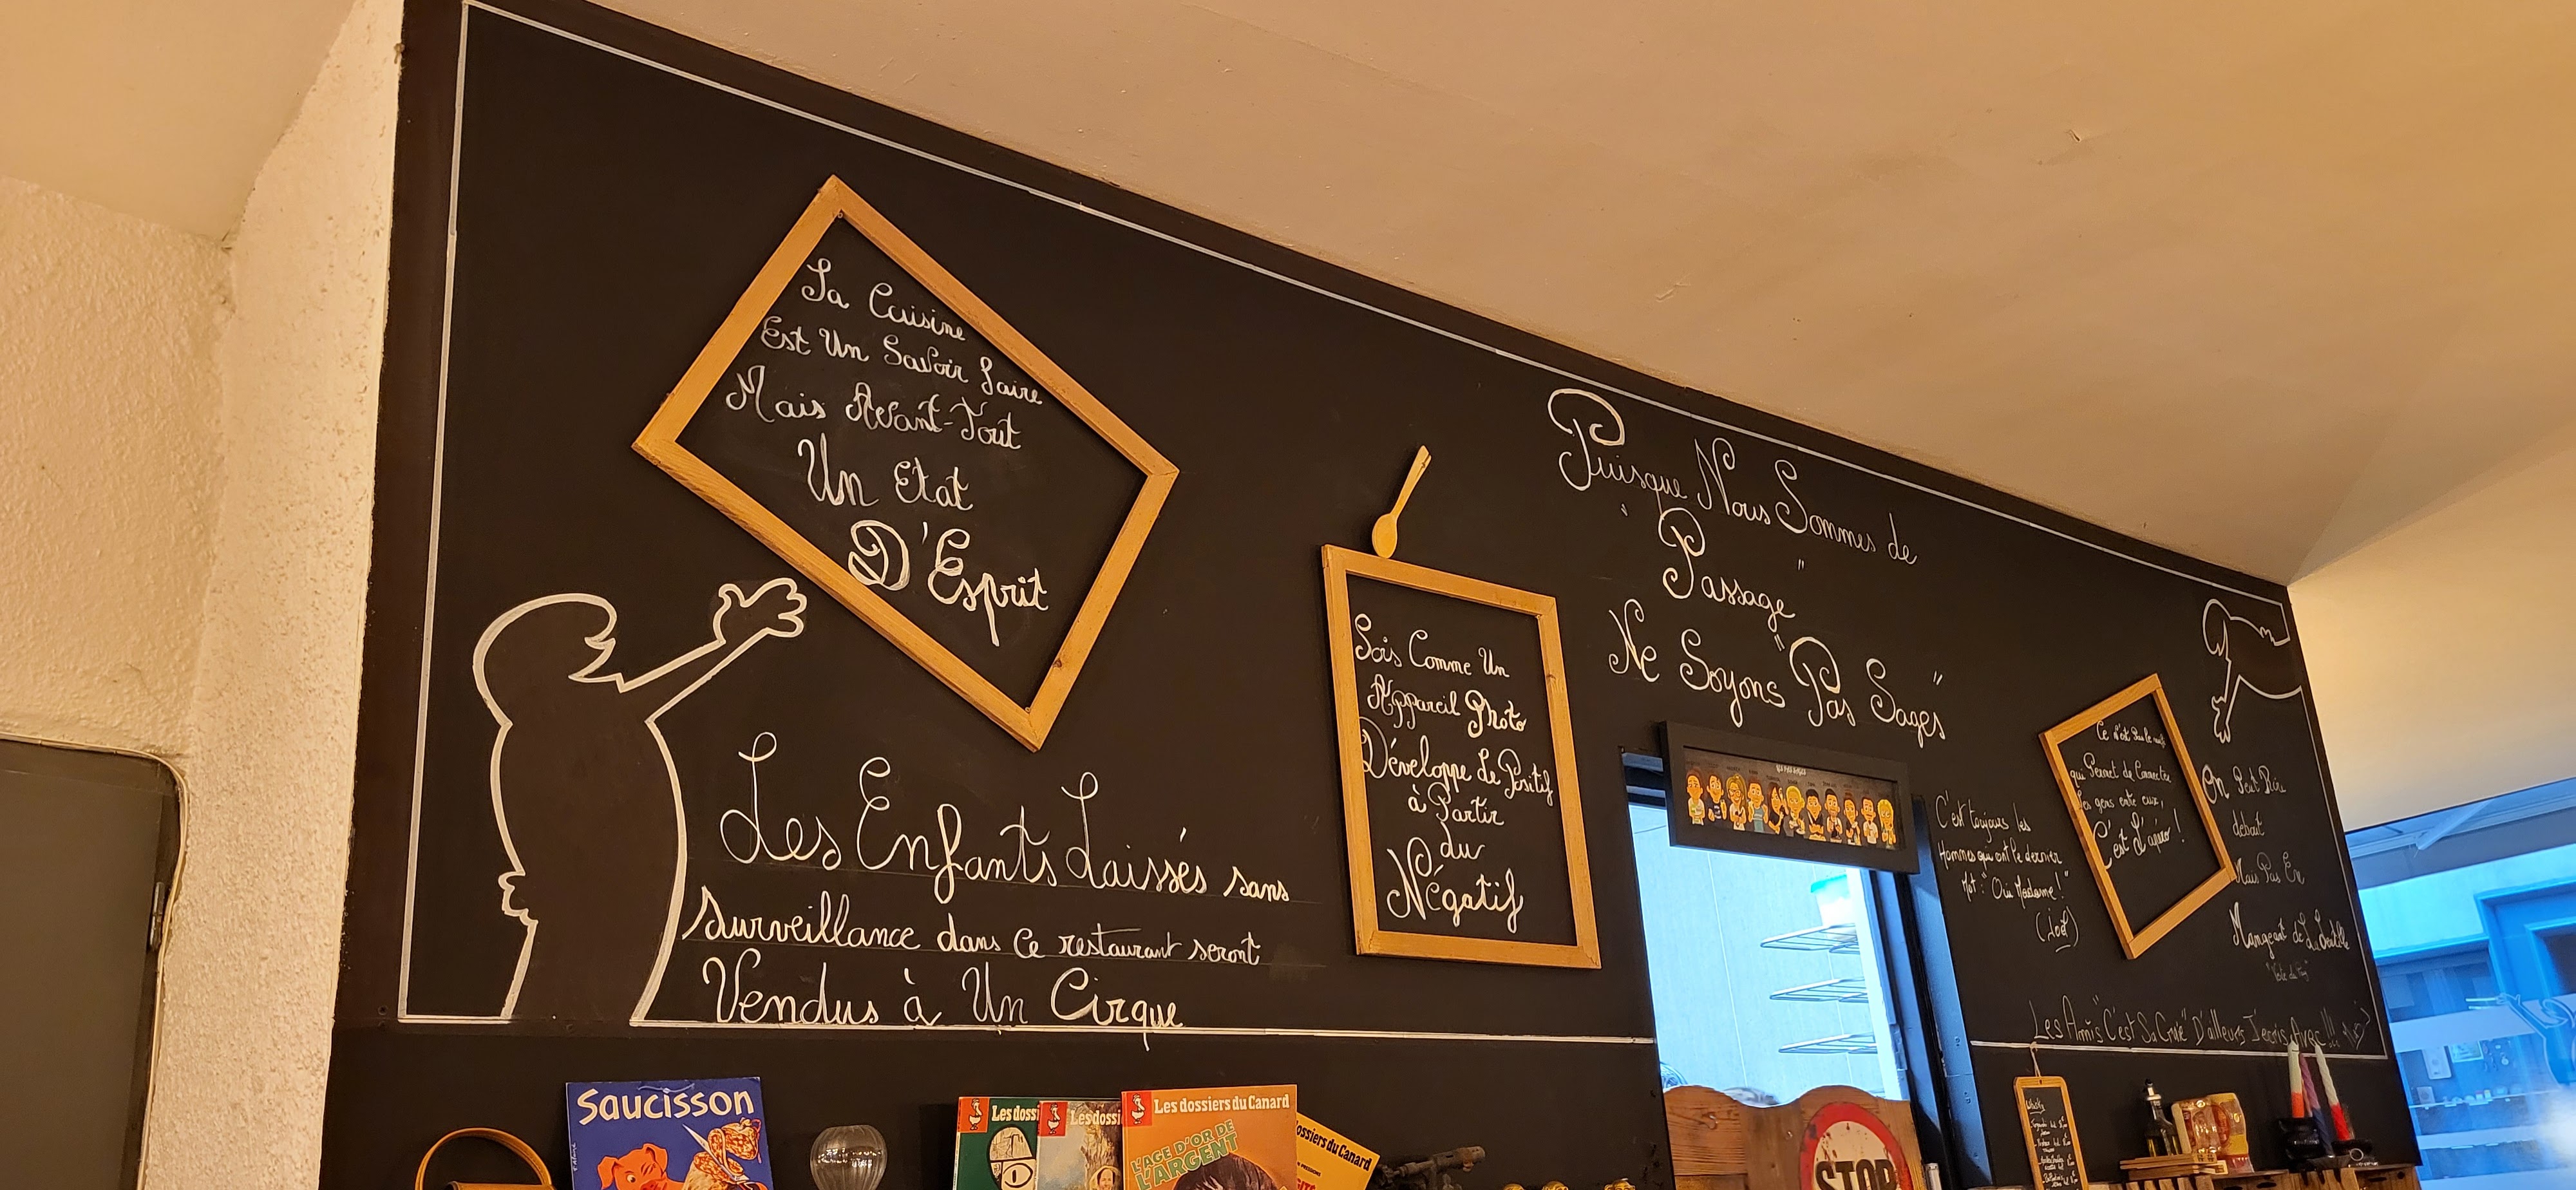 La Cuisine
Est Un Savoir Faire
Mais Avant-Tout
Un Etat
D'Esprit
Les Enfants Laissés sans
surveillance dans ce restaurant seront
Vendus à Un Cirque
Sois Comme Un
Appareil Photo
Développe Le Positif
à Partir
du
Négatif
Puisque Nous Sommes de
"Passage"
Ne Soyons "Pas Sages"
C'est toujours les
Hommes qui ont le dernier
Mot: "Oui Madame!"
(Joël)
Ce n'est pas le
qui Permet de Connecter
les gens entre eux,
C'est L'apéro!
On Peut Rire
debout
Mais Pas En
Mangeant de La
Les Amis "C'est Sa Craie" D'ailleurs J'écris Avec!!!
Saucisson
Les dossi
Les dossi
Les dossiers du Canard
L'AGE D'OR DE
L'ARGENT
ossiers du Canard
STOP